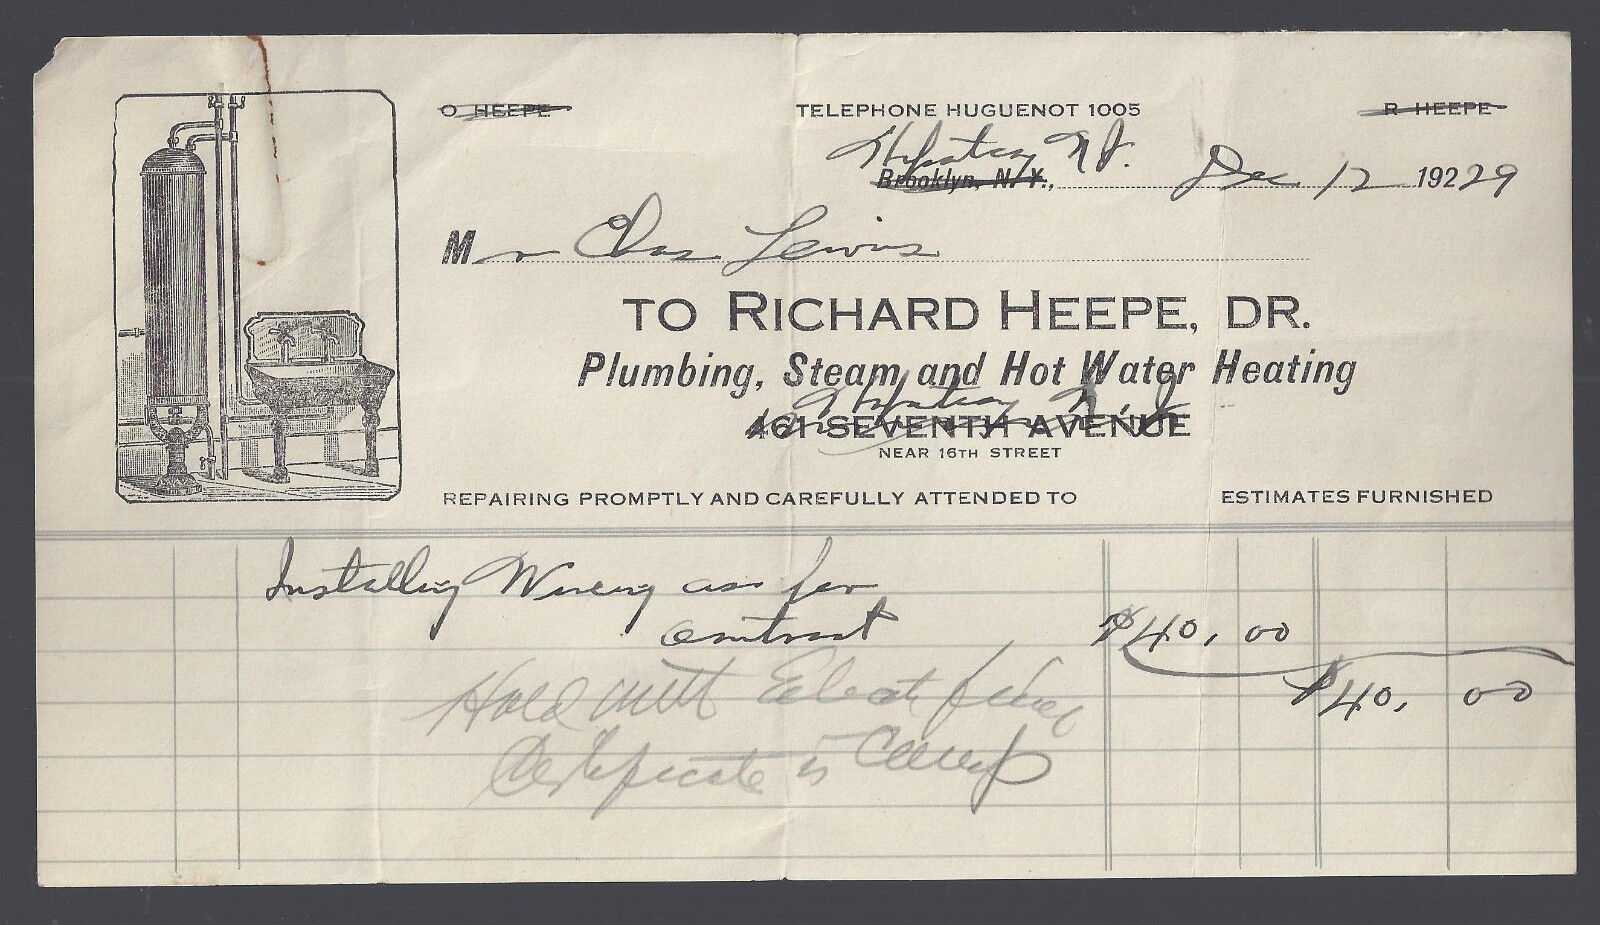 O HEEPE TELEPHONE HUGUENOT 1005 R HEEPE
N.J.
Brooklyn, N. Y., Dec 12 192229
Mr Chas Lewis
TO RICHARD HEEPE, DR.
Plumbing, Steam and Hot Water Heating
461 SEVENTH AVENUE
NEAR 16TH STREET
REPAIRING PROMPTLY AND CAREFULLY ATTENDED TO ESTIMATES FURNISHED
Installing Wireing as per
contract $40.00
$40.00
Hold until
Certificate is